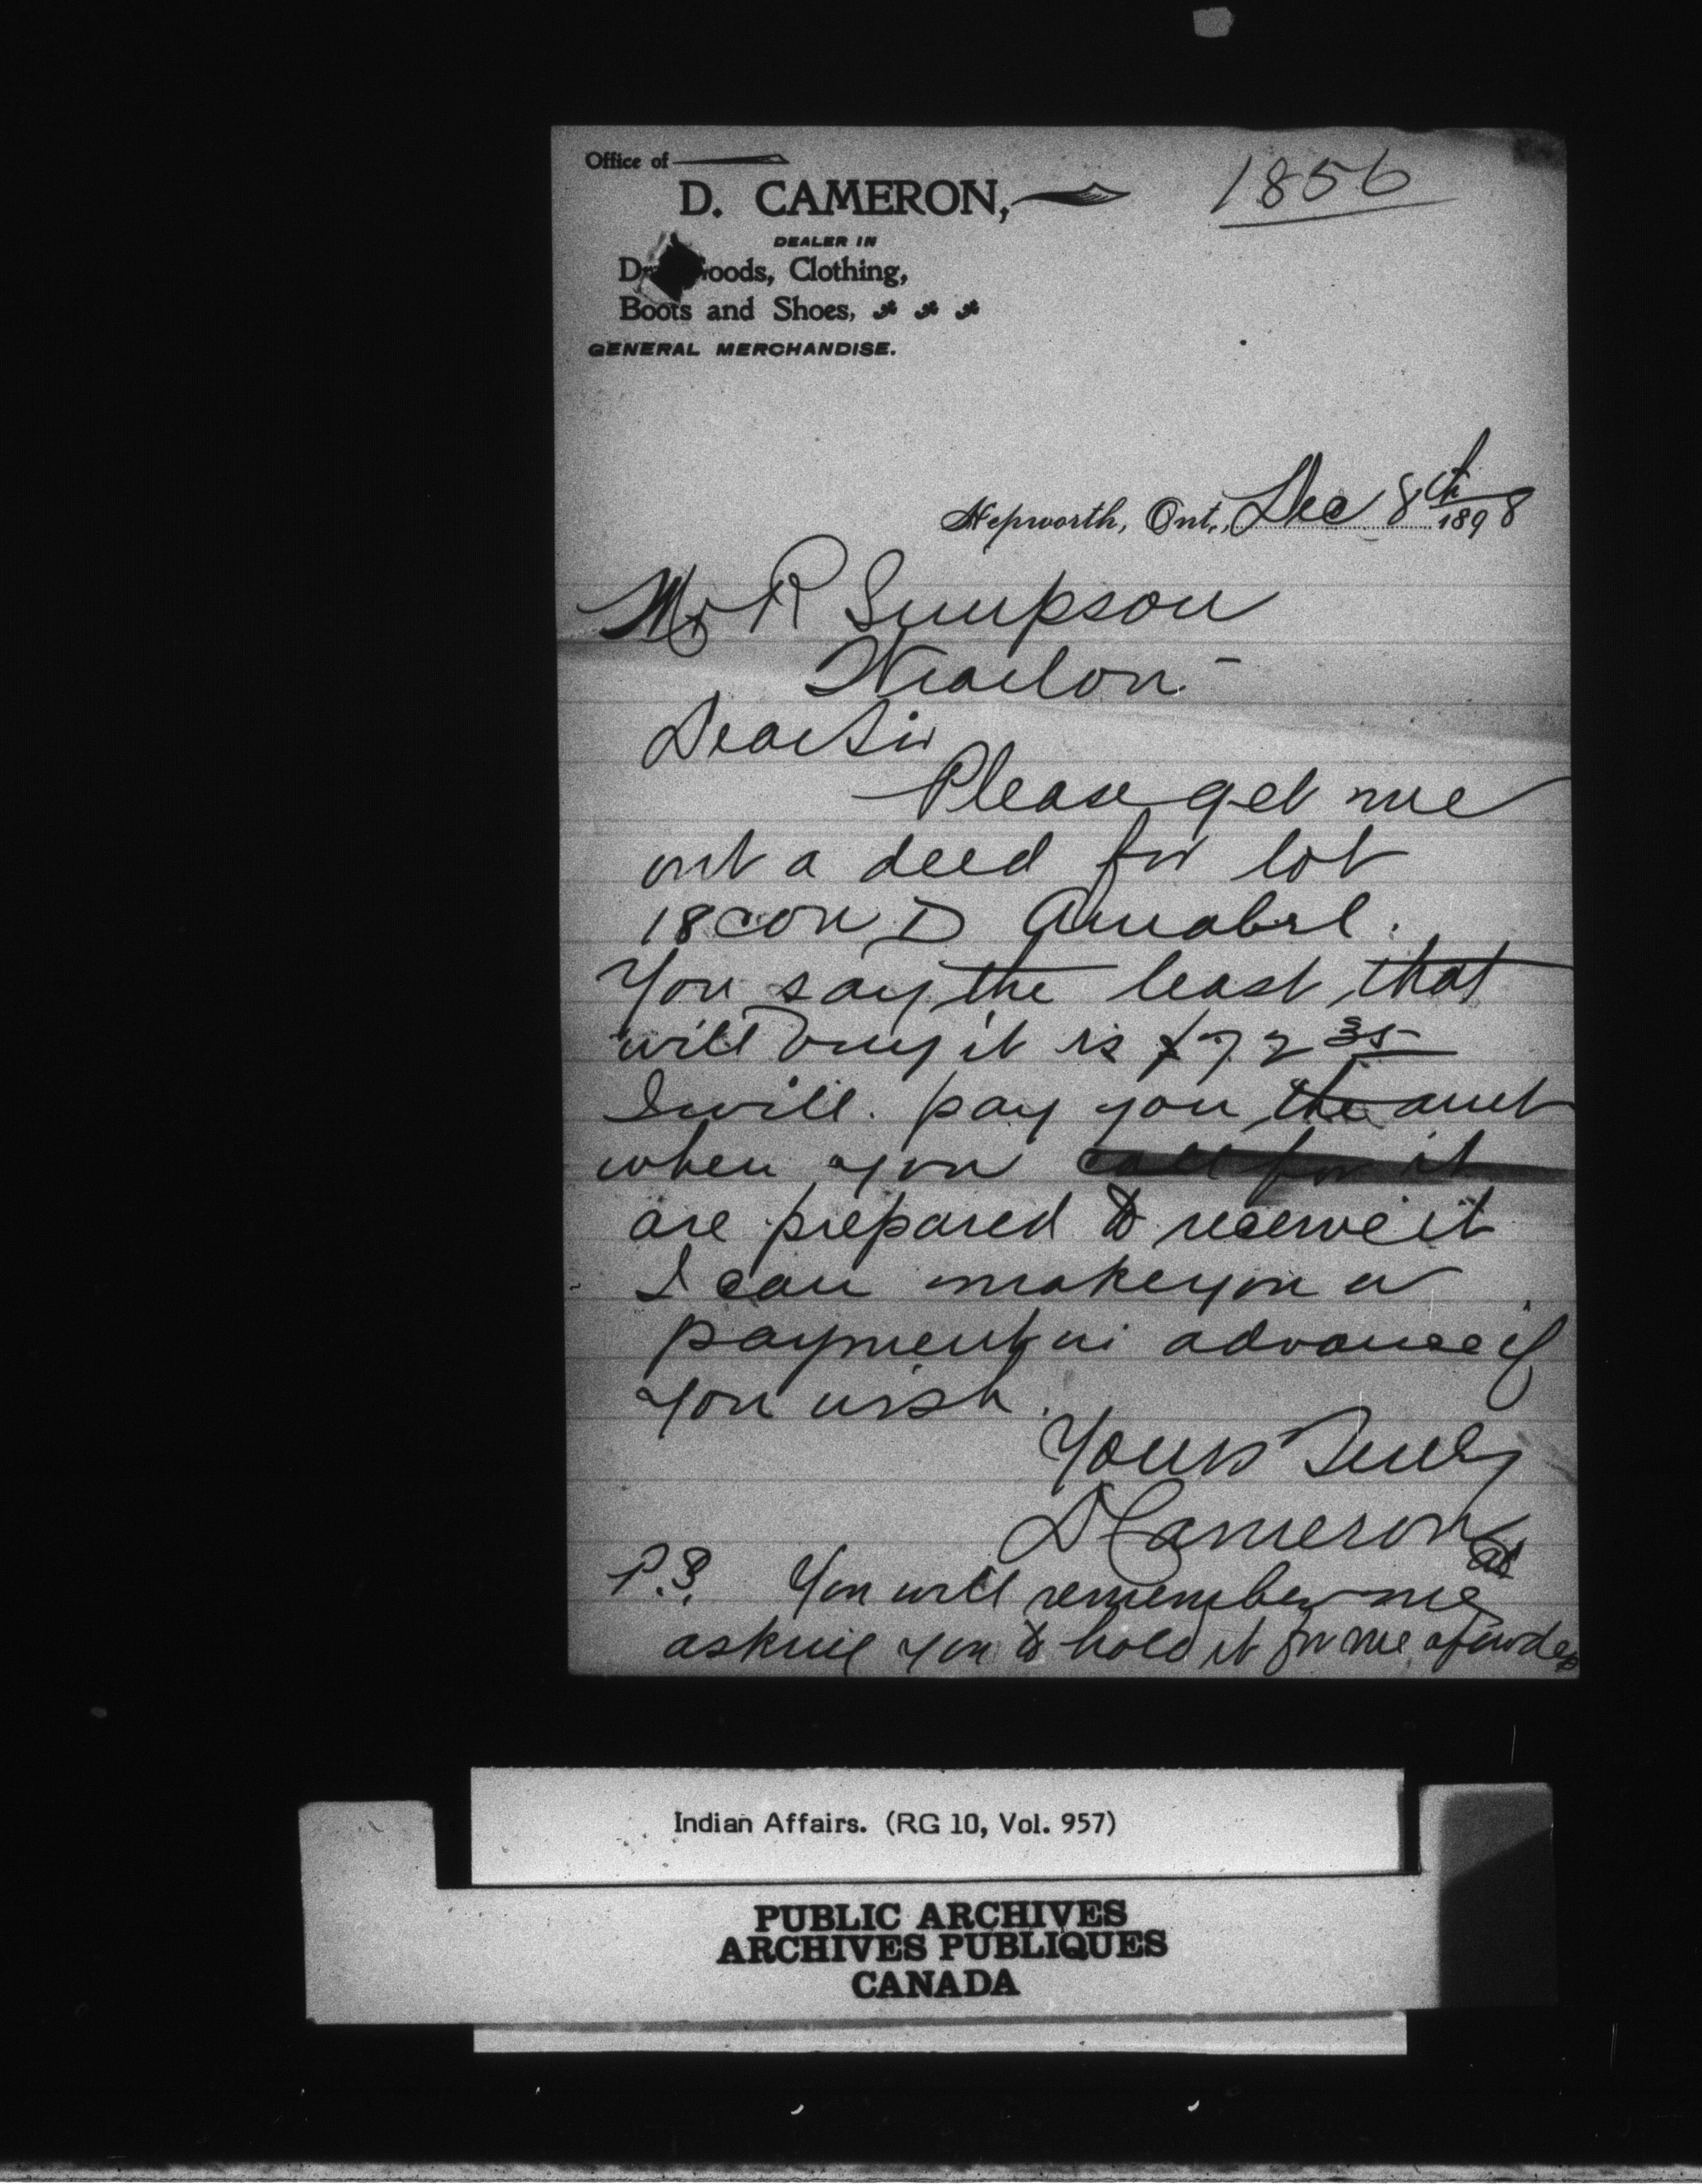 Office of
D. CAMERON,
1856
DEALER IN
Dry Goods, Clothing,
Boots and Shoes,
GENERAL MERCHANDISE.
Hepworth, Ont., Dec 8th 1898
Mr R Simpson
Wiarton
Dear Sir
Please get me
out a deed for lot
18 con D Amabel.
You say the least that
will buy it is $72 35
I will pay you the amt
when you call for it
are prepared to receive it
I can make you a
payment in advance if
you wish.
Yours Truly
D Cameron
P.S. You will remember me
asking you to hold it for me a few days
Indian Affairs. (RG 10, Vol. 957)
PUBLIC ARCHIVES
ARCHIVES PUBLIQUES
CANADA